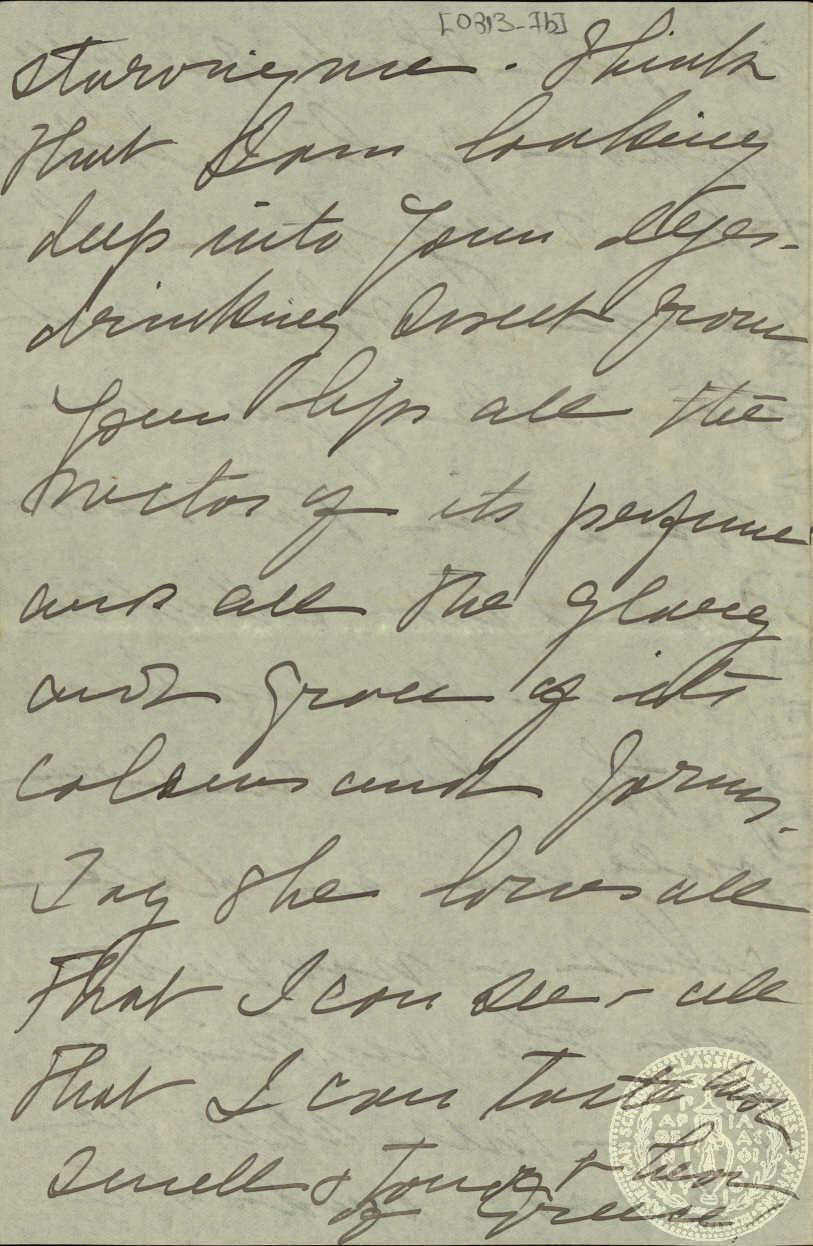 [0313-7b]
starving me. Think
that I am looking
deep into Your Eyes -
drinking sweet from
Your lips all the
nectar of its perfume
and all the glory
and grace of its
colours and forms. -
Say she loves all
that I can see - all
that I can taste and
smell & touch & hear
of Greece